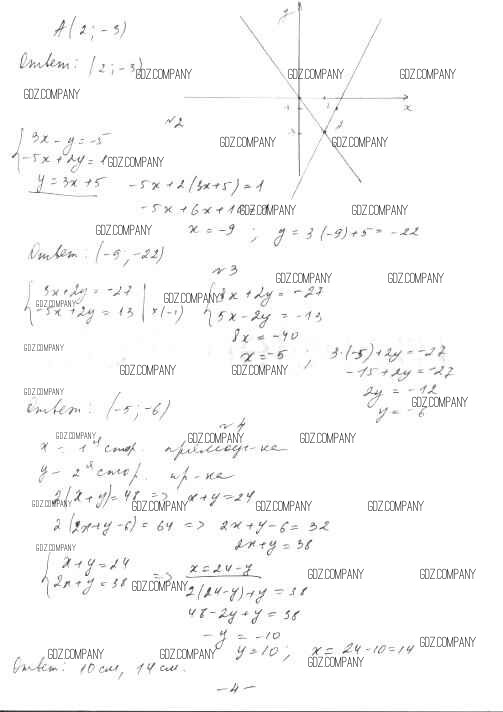 A(2; -3)
Ответ: (2; -3)
y
x
1
A
GDZ.COMPANY GDZ.COMPANY GDZ.COMPANY
GDZ.COMPANY
№2
{3x - y = -5
-5x + 2y = 1
GDZ.COMPANY GDZ.COMPANY
y = 3x + 5 -5x + 2(3x+5) = 1
-5x + 6x + 10 = 1
GDZ.COMPANY GDZ.COMPANY
GDZ.COMPANY
x = -9 ; y = 3·(-9)+5 = -22
Ответ: (-9, -22)
№3
GDZ.COMPANY GDZ.COMPANY
{3x + 2y = -27
-5x + 2y = 13 | ×(-1)
{3x + 2y = -27
5x - 2y = -13
GDZ.COMPANY GDZ.COMPANY
8x = -40
x = -5 ; 3·(-5)+2y = -27
GDZ.COMPANY
-15 + 2y = -27
GDZ.COMPANY GDZ.COMPANY
2y = -12
y = -6
GDZ.COMPANY GDZ.COMPANY
Ответ: (-5; -6)
№4
x - 1ая стор. прямоуг-ка
GDZ.COMPANY GDZ.COMPANY GDZ.COMPANY
y - 2ая стор. пр-ка
2(x+y) = 48 => x+y = 24
GDZ.COMPANY GDZ.COMPANY GDZ.COMPANY GDZ.COMPANY
2(2x+y-6) = 64 => 2x+y-6 = 32
2x+y = 38
GDZ.COMPANY
{x+y = 24
2x+y = 38
=> x = 24-y
GDZ.COMPANY GDZ.COMPANY GDZ.COMPANY
2(24-y)+y = 38
48-2y+y = 38
-y = -10
y = 10 ; x = 24-10 = 14
GDZ.COMPANY GDZ.COMPANY GDZ.COMPANY GDZ.COMPANY
Ответ: 10 см, 14 см.
-4-